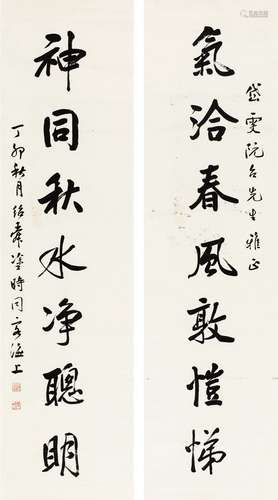 氣洽春風敦愷悌
岱雯阮台先生雅正
神同秋水净聰明
丁卯秋月紹舜塗時同客滬上